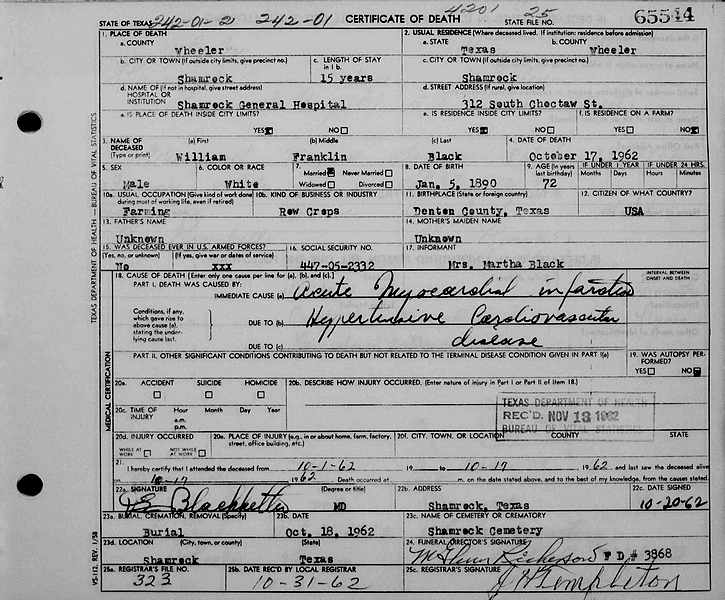 STATE OF TEXAS 242-01-2 242-01 CERTIFICATE OF DEATH 4201 STATE FILE NO. 25 65544
1. PLACE OF DEATH
a. COUNTY
Wheeler
2. USUAL RESIDENCE (Where deceased lived. If institution: residence before admission)
a. STATE b. COUNTY
Texas Wheeler
b. CITY OR TOWN (If outside city limits, give precinct no.) c. LENGTH OF STAY in 1 b.
Shamrock 15 years
c. CITY OR TOWN (If outside city limits, give precinct no.)
Shamrock
d. NAME OF (If not in hospital, give street address) HOSPITAL OR INSTITUTION
Shamrock General Hospital
d. STREET ADDRESS (If rural, give location)
312 South Choctaw St.
e. IS PLACE OF DEATH INSIDE CITY LIMITS?
YES NO
e. IS RESIDENCE INSIDE CITY LIMITS? f. IS RESIDENCE ON A FARM?
YES NO YES NO
3. NAME OF DECEASED (Type or print) (a) First (b) Middle (c) Last 4. DATE OF DEATH
William Franklin Black October 17, 1962
5. SEX 6. COLOR OR RACE 7. Married Never Married Widowed Divorced 8. DATE OF BIRTH 9. AGE (In years last birthday) IF UNDER 1 YEAR Months Days IF UNDER 24 HRS. Hours Minutes
Male White Jan. 5, 1890 72
10a. USUAL OCCUPATION (Give kind of work done during most of working life, even if retired) 10b. KIND OF BUSINESS OR INDUSTRY 11. BIRTHPLACE (State or foreign country) 12. CITIZEN OF WHAT COUNTRY?
Farming Row Crops Denton County, Texas USA
13. FATHER'S NAME 14. MOTHER'S MAIDEN NAME
Unknown Unknown
15. WAS DECEASED EVER IN U.S. ARMED FORCES? (Yes, no, or unknown) (If yes, give war or dates of service) 16. SOCIAL SECURITY NO. 17. INFORMANT
No xxx 447-05-2332 Mrs. Martha Black
18. CAUSE OF DEATH [Enter only one cause per line for (a), (b), and (c).] INTERVAL BETWEEN ONSET AND DEATH
PART I. DEATH WAS CAUSED BY:
IMMEDIATE CAUSE (a) Acute Myocardial infarction
Conditions, if any, which gave rise to above cause (a), stating the underlying cause last.
DUE TO (b) Hypertensive Cardiovascular
DUE TO (c) disease
PART II. OTHER SIGNIFICANT CONDITIONS CONTRIBUTING TO DEATH BUT NOT RELATED TO THE TERMINAL DISEASE CONDITION GIVEN IN PART I(a) 19. WAS AUTOPSY PERFORMED?
YES NO
20a. ACCIDENT SUICIDE HOMICIDE 20b. DESCRIBE HOW INJURY OCCURRED. (Enter nature of injury in Part I or Part II of item 18.)
20c. TIME OF INJURY Hour Month Day Year
a.m.
p.m.
TEXAS DEPARTMENT OF HEALTH
REC'D. NOV 13 1962
BUREAU OF VITAL STATISTICS
20d. INJURY OCCURRED WHILE AT WORK NOT WHILE AT WORK 20e. PLACE OF INJURY (e.g., in or about home, farm, factory, street, office building, etc.) 20f. CITY, TOWN, OR LOCATION COUNTY STATE
21. I hereby certify that I attended the deceased from 10-1-62 19 to 10-17 1962 and last saw the deceased alive
10-17 1962 Death occurred at m. on the date stated above, and to the best of my knowledge, from the causes stated.
22a. SIGNATURE (Degree or title) 22b. ADDRESS 22c. DATE SIGNED
MD Shamrock, Texas 10-20-62
23a. BURIAL, CREMATION, REMOVAL (Specify) 23b. DATE 23c. NAME OF CEMETERY OR CREMATORY
Burial Oct. 18, 1962 Shamrock Cemetery
23d. LOCATION (City, town, or county) (State) 24. FUNERAL DIRECTOR'S SIGNATURE
Shamrock Texas F D # 3868
25a. REGISTRAR'S FILE NO. 25b. DATE REC'D BY LOCAL REGISTRAR 25c. REGISTRAR'S SIGNATURE
323 10-31-62 Templeton
TEXAS DEPARTMENT OF HEALTH — BUREAU OF VITAL STATISTICS
MEDICAL CERTIFICATION
VS-112, REV. 1/58